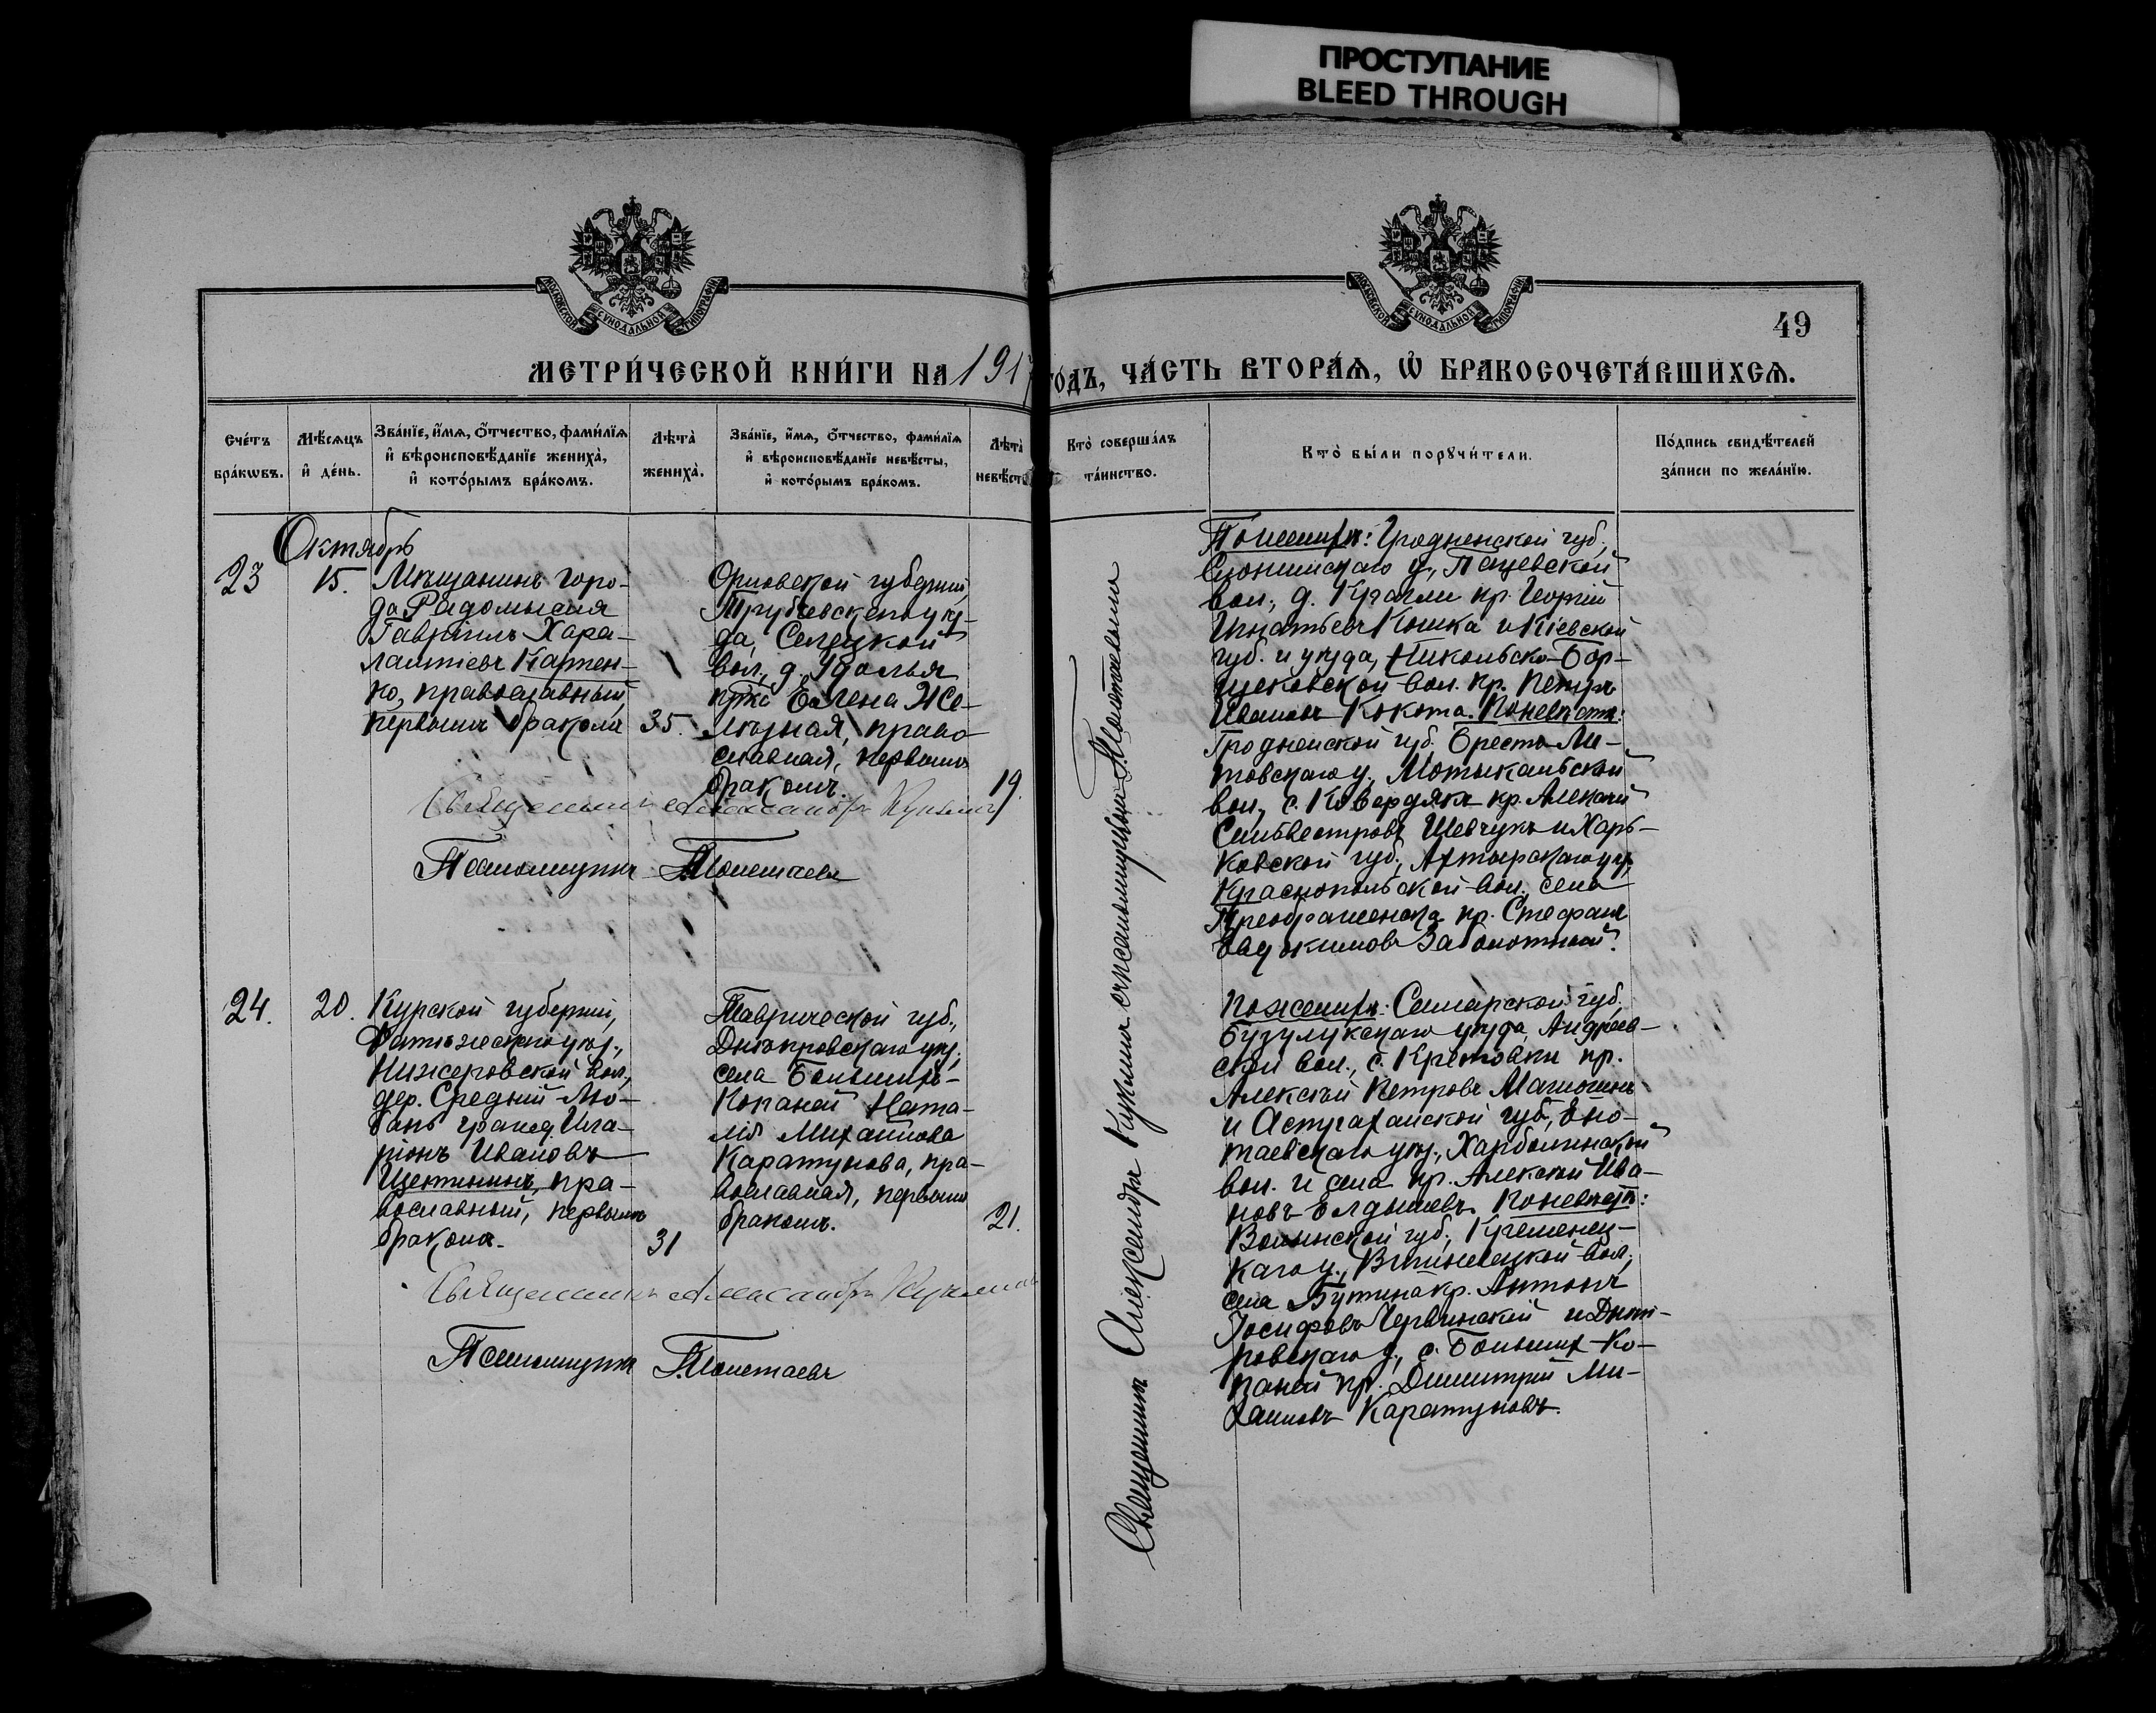 ПРОСТУПАНИЕ
BLEED THROUGH
МОСКОВСКОЙ СѴНОДАЛЬНОЙ ТИПОГРАФІИ
МОСКОВСКОЙ СѴНОДАЛЬНОЙ ТИПОГРАФІИ
49
МЕТРИ́ЧЕСКОЙ КНИ́ГИ НА 1917 ГОДЪ, ЧА́СТЬ ВТОРА́Ѧ, Ѡ҆ БРАКОСОЧЕТА́ВШИХСѦ.
Сче́тъ
бра́кѡвъ.
Мѣ́сѧцъ
и҆ де́нь.
Зва́нїе, и҆́мѧ, ѻ҆́тчество, фами́лїѧ
и҆ вѣроисповѣ́данїе жениха̀,
и҆ кото́рымъ бра́комъ.
Лѣ́та̀
жениха̀.
Зва́нїе, и҆́мѧ, ѻ҆́тчество, фами́лїѧ
и҆ вѣроисповѣ́данїе невѣ́сты,
и҆ кото́рымъ бра́комъ.
Лѣ́та̀
невѣ́сты
Кто̀ соверша́лъ
та́инство.
Кто̀ бы́ли порꙋчи́тели.
По́дпись свидѣ́телей
за́писи по жела́нїю.
Октябрь
23
15.
Мѣщанинъ горо-
да Радомысля
Гавріилъ Хара-
лампіевъ Карпен-
ко, православный,
первымъ бракомъ
35.
Орловской губерніи,
Трубчевскаго уѣз-
да, Селецкой
вол., д. Удолья
кр-ка Елена Же-
лѣзная, право-
славная, первымъ
бракомъ.
19.
Священникъ Александръ Кукинъ
Псаломщикъ Полетаевъ
По женихѣ: Гродненской губ.,
Слонимскаго у., Пацевской
вол., д. Кугали кр. Георгій
Игнатьевъ Кошка и Кіевской
губ. и уѣзда, Никольско-Бор-
щаговской вол. кр. Петръ
Ивановъ Кокота. По невѣстѣ:
Гродненской губ. Брестъ-Ли-
товскаго у., Мотыкальской
вол., с. Ковердяки кр. Алексѣй
Сильвестровъ Шевчукъ и Харь-
ковской губ., Ахтырскаго уѣз,
Краснопольской вол., села
Преображенска кр. Стефанъ
Евдокимовъ Заболотный.
24.
20.
Курской губерніи,
Фатежскаго уѣз.,
Нижеровской вол.,
дер. Средній Лю-
бань гражд. Ила-
ріонъ Ивановъ
Щетининъ, пра-
вославный, первымъ
бракомъ.
31
Таврической губ.,
Днѣпровскаго уѣз.
села Большихъ-
Копаней Ната-
лія Михайлова
Каратунова, пра-
вославная, первымъ
бракомъ.
21.
Священникъ Александръ Кукинъ
Псаломщикъ Полетаевъ
По женихѣ: Самарской губ.
Бузулукскаго уѣзда, Андреев-
ской вол., с. Кретовки кр.
Алексѣй Петровъ
и Астраханской губ., Ено-
таевскаго уѣз., Харбалинской
вол. и села кр. Алексѣй Ива-
новъ Елдышевъ. По невѣстѣ:
Волынской губ., Кременец-
каго у., Вишневецкой вол.,
села Бутина кр. Антонъ
Іосифовъ Червинскій и Днѣп-
ровскаго у., с. Большихъ Ко-
паней кр. Димитрій Ми-
хаиловъ Каратуновъ.
Священникъ Александръ Кукинъ съ псаломщикомъ Полетаевымъ